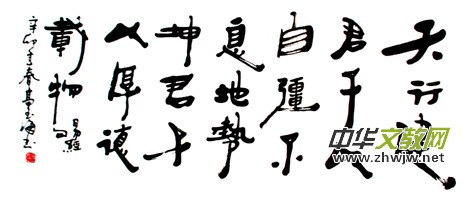 天行健
君子以
自彊不
息地勢
坤君子
以厚德
載物
易經句
辛卯春
中华文教网
www.zhwjw.net